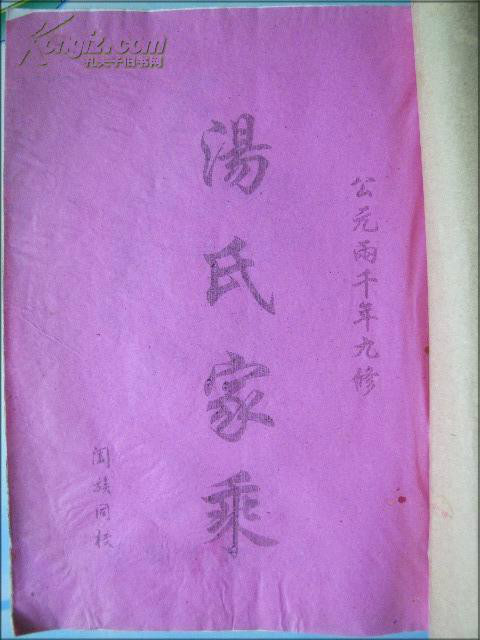 公元兩千年九修
湯氏家乘
闔族同校
Kongfz.com
孔夫子旧书网